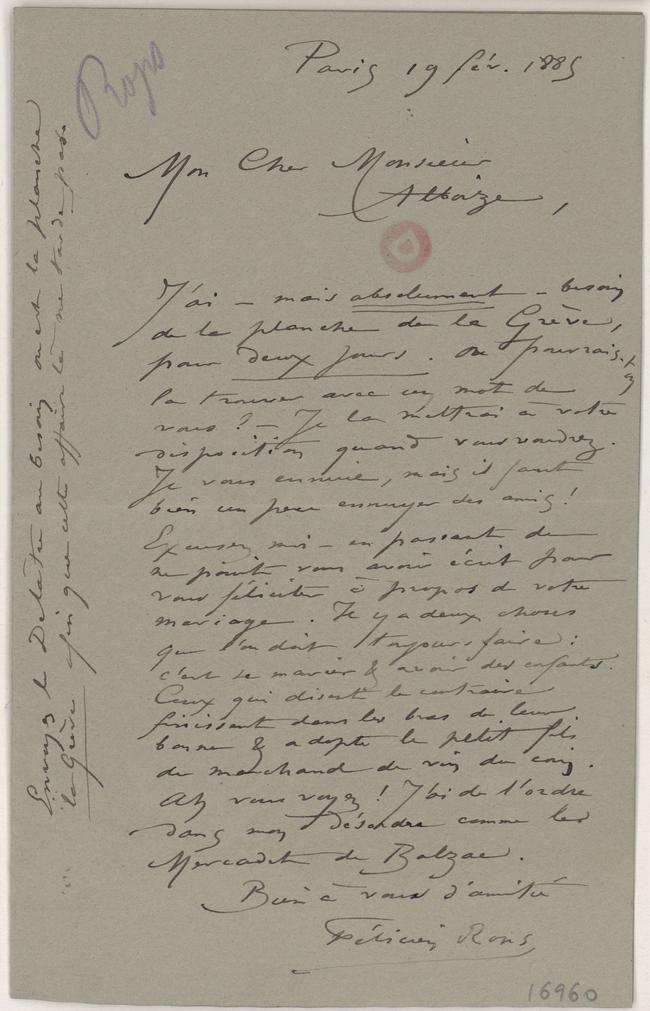 Rops
Paris 19 fév. 1885
Mon Cher Monsieur
Alboize,
J'ai – mais absolument – besoin
de la planche de la Grève,
pour deux jours. Ou pourrais-je
la trouver avec un mot de
vous? – Je la mettrai à votre
disposition quand vous voudrez.
Je vous ennuie, mais il faut
bien un peu ennuyer ses amis!
Excusez moi – en passant de
ne point vous avoir écrit pour
vous féliciter à propos de votre
mariage. Il y a deux choses
que l'on doit toujours faire:
c'est se marier & avoir des enfants.
Ceux qui disent le contraire
finissent dans les bras de leur
bonne & adopte le petit fils
du marchand de vin du coin.
Ah vous voyez! J'ai de l'ordre
dans mon désordre comme les
Mercadet de Balzac.
Bien à vous d'amitié
Félicien Rops
Envoyez le Delatre au besoin où est la planche
la Grève afin que cette affaire là ne tarde pas.
16960